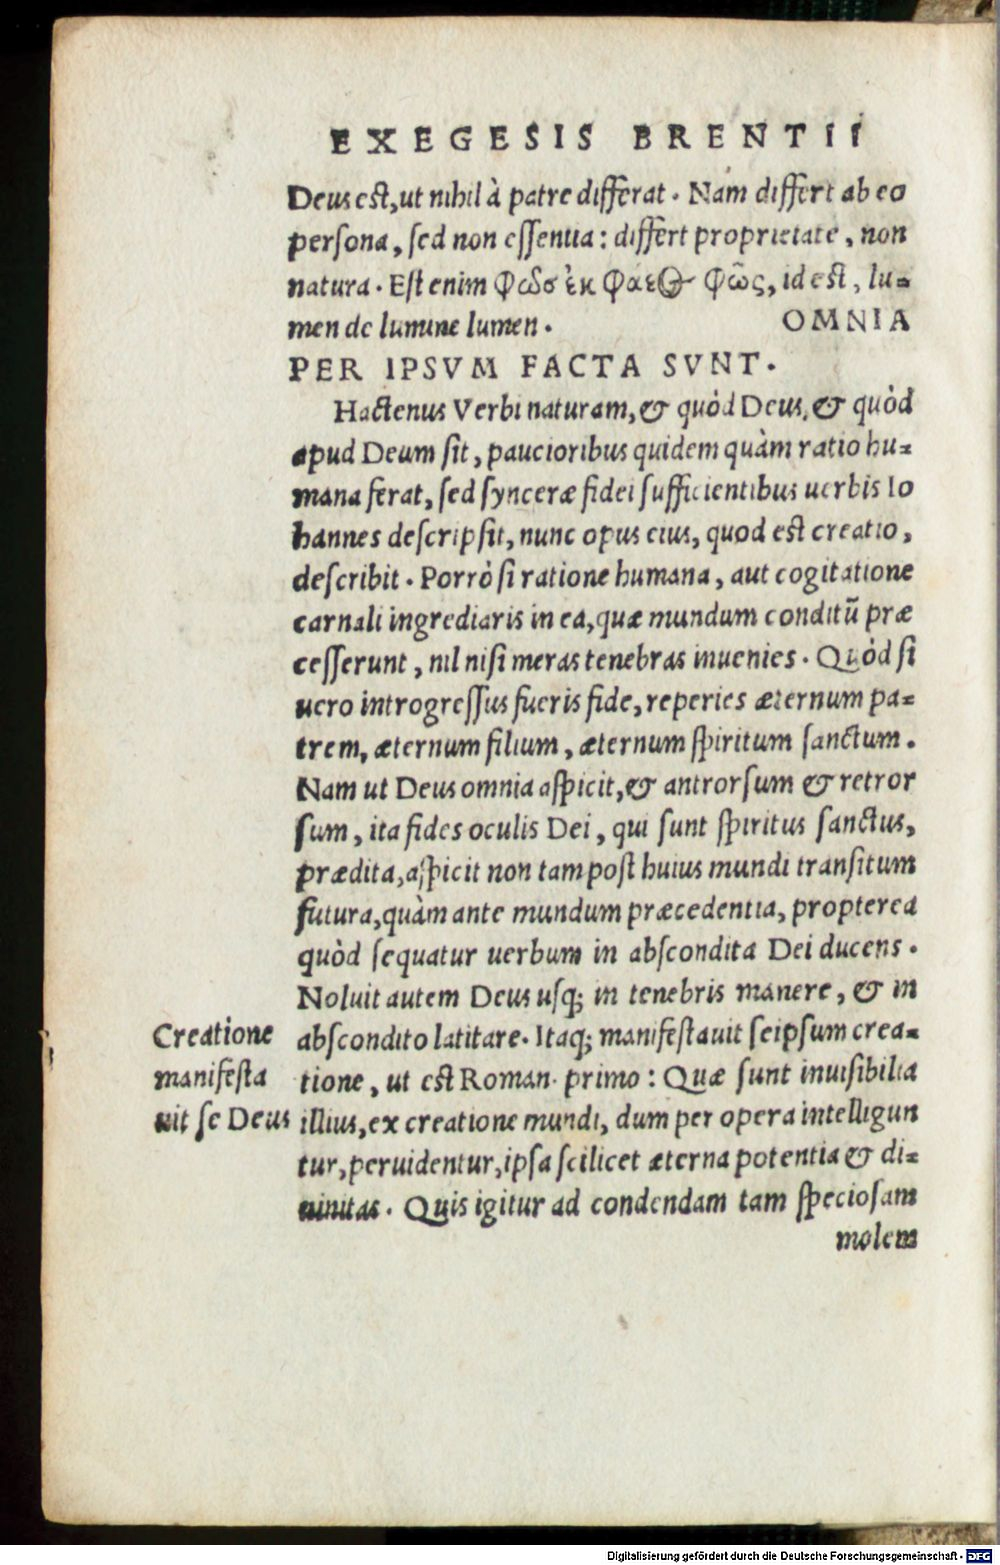 EXEGESIS BRENTII
Deus est, ut nihil à patre differat. Nam differt ab eo
persona, sed non essentia: differt proprietate, non
natura. Est enim Φῶσ ἐκ Φαεος Φῶς, id est, lu=
men de lumine lumen. OMNIA
PER IPSVM FACTA SVNT.
Hactenus Verbi naturam, & quòd Deus, & quòd
apud Deum sit, paucioribus quidem quàm ratio hu=
mana ferat, sed synceræ fidei sufficientibus uerbis Io
hannes descripsit, nunc opus eius, quod est creatio,
describit. Porrò si ratione humana, aut cogitatione
carnali ingrediaris in ea, quæ mundum conditū præ
cesserunt, nil nisi meras tenebras inuenies. Quòd si
uero introgressus fueris fide, reperies æternum pa=
trem, æternum filium, æternum spiritum sanctum.
Nam ut Deus omnia aspicit, & antrorsum & retror
sum, ita fides oculis Dei, qui sunt spiritus sanctus,
prædita, aspicit non tam post huius mundi transitum
futura, quàm ante mundum præcedentia, propterea
quòd sequatur uerbum in abscondita Dei ducens.
Noluit autem Deus usq; in tenebris manere, & in
abscondito latitare. Itaq; manifestauit seipsum crea=
tione, ut est Roman. primo: Quæ sunt inuisibilia
illius, ex creatione mundi, dum per opera intelligun
tur, peruidentur, ipsa scilicet æterna potentia & di=
uinitas. Quis igitur ad condendam tam speciosam
molem
Creatione
manifesta
uit se Deus
Digitalisierung gefördert durch die Deutsche Forschungsgemeinschaft - DFG